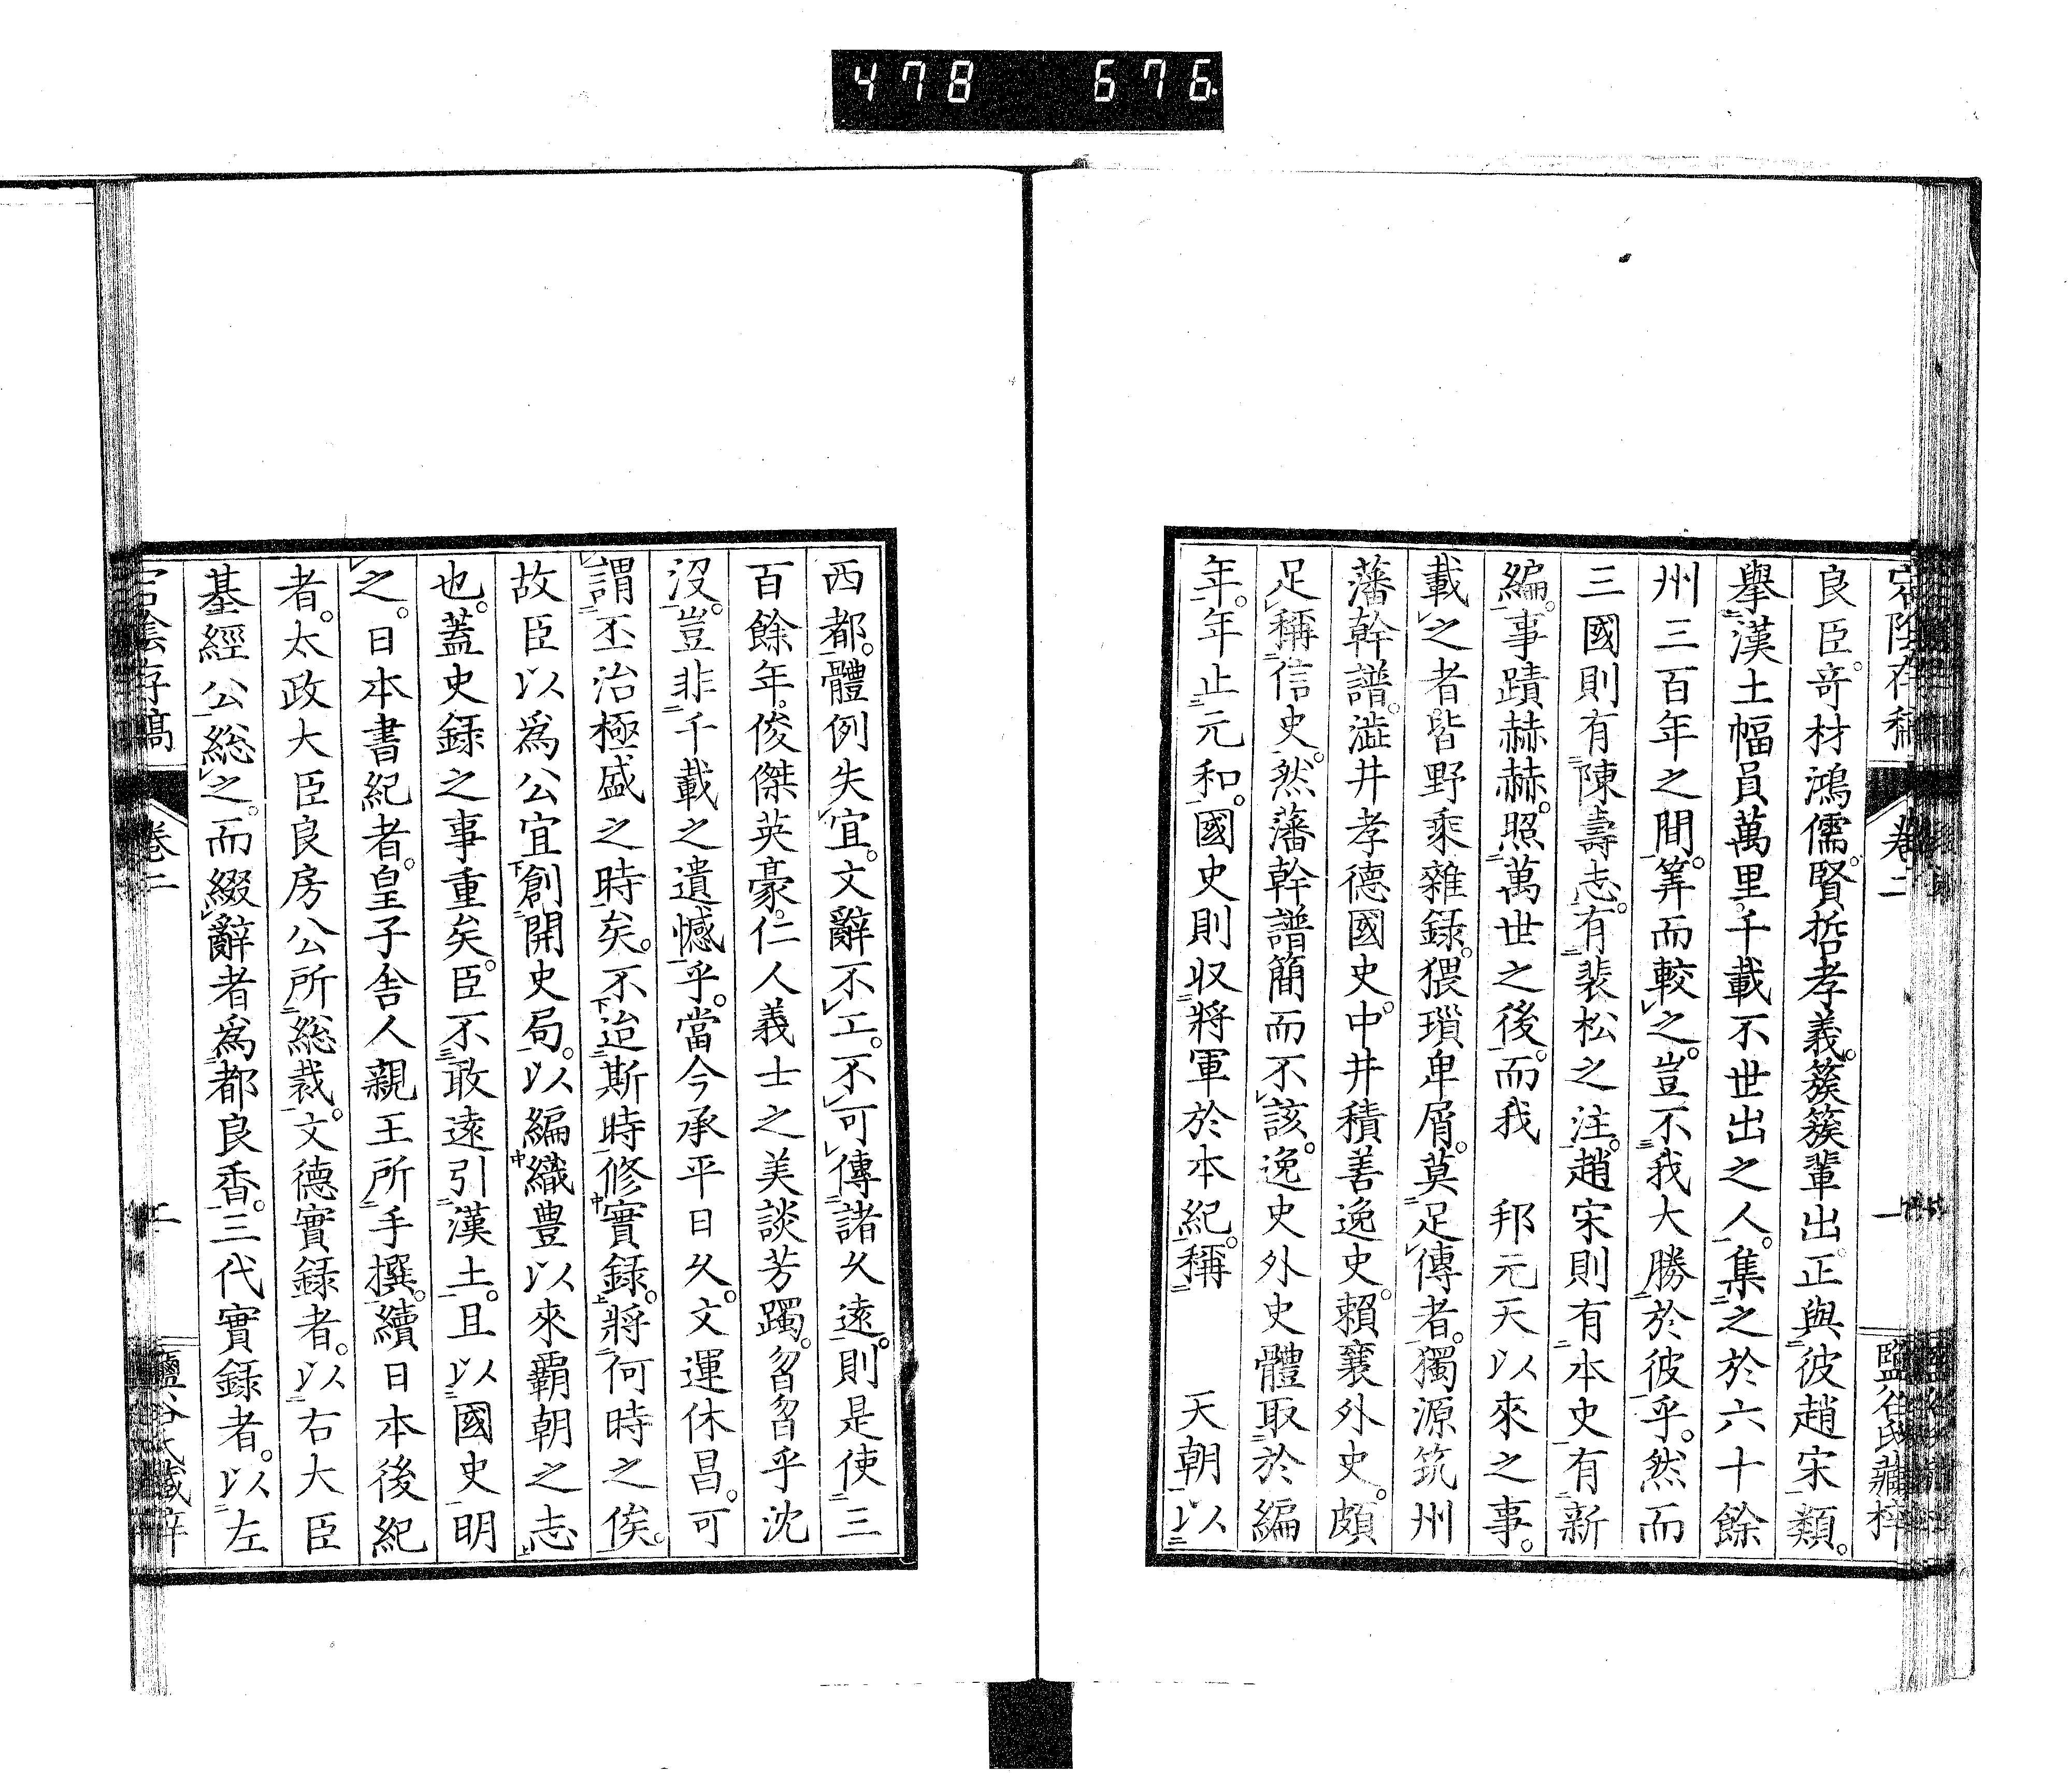 478 676
宕陰存稿 卷二 一 鹽谷氏藏梓
良臣。奇材鴻儒。賢哲孝義。簇簇輩出。正與彼趙宋類。
擧漢土幅員萬里。千載不世出之人。集之於六十餘
州三百年之間。筭而較之。豈不我大勝於彼乎。然而
三國則有陳壽志。有裴松之注。趙宋則有本史有新
編。事蹟赫赫。照萬世之後。而我 邦元天以來之事。
載之者。皆野乘雜録。猥瑣卑屑。莫足傳者。獨源筑州
藩幹譜。澁井孝德國史。中井積善逸史。賴襄外史。頗
足稱信史。然藩幹譜簡而不該。逸史外史體取於編
年。年止元和。國史則収將軍於本紀。稱 天朝以
西都。體例失宜。文辭不工。不可傳諸久遠。則是使三
百餘年。俊傑英豪。仁人義士之美談芳躅。曶曶乎沈
沒。豈非千載之遺憾乎。當今承平日久。文運休昌。可
謂丕治極盛之時矣。不迨斯時修實録。將何時之俟。
故臣以爲公宜創開史局。以編織豊以來覇朝之志
也。蓋史録之事重矣。臣不敢遠引漢土。且以國史明
之。日本書紀者。皇子舎人親王所手撰。續日本後紀
者。太政大臣良房公所総裁。文德實録者。以右大臣
基經公総之。而綴辭者爲都良香。三代實録者。以左
宕陰存稿 卷二 二 鹽谷氏藏梓